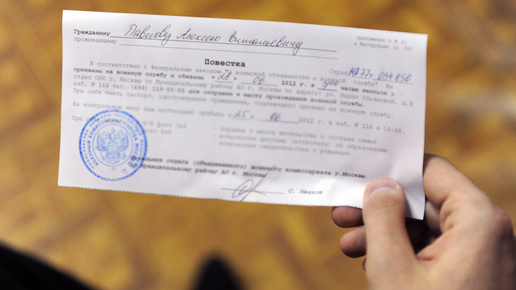 приложение к № 30
к Инструкции (п. 34)
Гражданину Павлову Алексею Витальевичу
проживающему
Повестка
В соответствии с Федеральным законом "О воинской обязанности и военной службе" Вы
Серия
призваны на военную службу и обязаны " 2012 г. к часам явиться в
отдел ОВК г. Москвы по Муниципальному району АО г. Москвы по адресу: ул. Марии Ульяновой, д.5
каб. № 110 тел. (499) 129-55-55 для отправки к месту прохождения военной службы.
При себе иметь паспорт, удостоверение гражданина, подлежащего призыву на военную службу.
На контрольную явку Вам необходимо прибыть " 25 " 06 2012 г. в каб. № 110 к 14-30.
При
- справка с места жительства о составе семьи
фото 3х4
- ксерокопия диплома (аттестата) об образовании
- ксерокопия свидетельства о рождении
Начальник отдела (объединенного) военного комиссариата г.Москвы
по Муниципальному району АО г. Москвы
С. Иванов